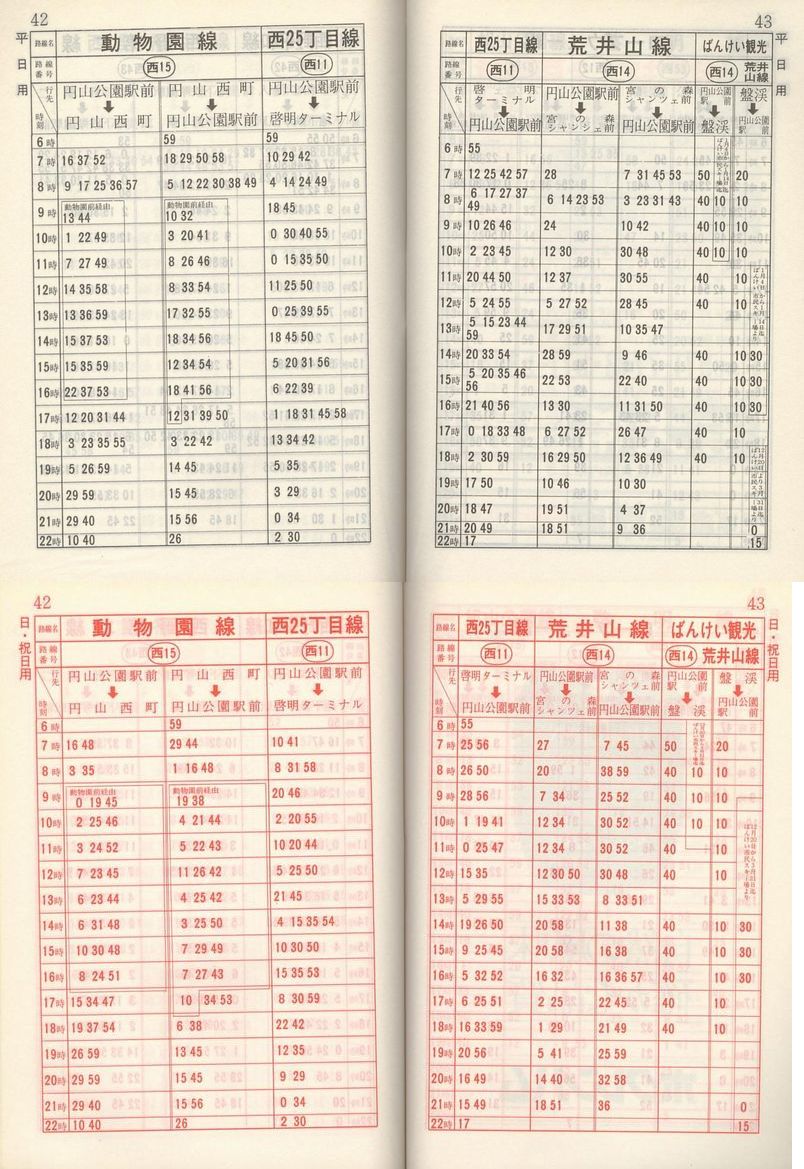 42
平日用
路線名 動物園線 西25丁目線
路線番号 西15 西11
行先 時刻 円山公園駅前 ➡ 円山西町 円山西町 ➡ 円山公園駅前 円山公園駅前 ➡ 啓明ターミナル
6時 59 59
7時 16 37 52 18 29 50 58 10 29 42
8時 9 17 25 36 57 5 12 22 30 38 49 4 14 24 49
9時 動物園前経由 13 44 動物園前経由 10 32 18 45
10時 1 22 49 3 20 41 0 30 40 55
11時 7 27 49 8 26 46 0 15 35 50
12時 14 35 58 8 33 54 11 25 50
13時 13 36 59 17 32 55 0 25 39 55
14時 15 37 53 18 34 56 18 45 50
15時 15 35 59 12 34 54 5 20 31 56
16時 22 37 53 18 41 56 6 22 39
17時 12 20 31 44 12 31 39 50 1 18 31 45 58
18時 3 23 35 55 3 22 42 13 34 42
19時 5 26 59 14 45 5 35
20時 29 59 15 45 3 29
21時 29 40 15 56 0 34
22時 10 40 26 2 30
43
路線名 西25丁目線 荒井山線 ばんけい観光
路線番号 西11 西14 西14 荒井山線
行先 時刻 啓明ターミナル ➡ 円山公園駅前 円山公園駅前 ➡ 宮の森シャンツェ前 宮の森シャンツェ前 ➡ 円山公園駅前 円山公園駅前 ➡ 盤渓 盤渓 ➡ 円山公園前
6時 55
7時 12 25 42 57 28 7 31 45 53 50 20
8時 6 17 27 37 49 6 14 23 53 3 23 31 43 40 10 10
9時 10 26 46 24 10 42 40 10 10
10時 2 23 45 12 30 30 48 40 10 10
11時 20 44 50 12 37 30 55 40 10
12時 5 24 55 5 27 52 28 45 40 10
13時 5 15 23 44 59 17 29 51 10 35 47
14時 20 33 54 28 59 9 46 40 10 30
15時 5 20 35 46 56 22 53 22 40 40 10 30
16時 21 40 56 13 30 11 31 50 40 10 30
17時 0 18 33 48 6 27 52 26 47 40 10
18時 2 30 59 16 29 50 12 36 49 40 10
19時 17 50 10 46 10 30
20時 18 47 19 51 4 37
21時 20 49 18 51 9 36 0
22時 17 15
42
日・祝日用
路線名 動物園線 西25丁目線
路線番号 西15 西11
行先 時刻 円山公園駅前 ➡ 円山西町 円山西町 ➡ 円山公園駅前 円山公園駅前 ➡ 啓明ターミナル
6時 59
7時 16 48 29 44 10 41
8時 3 35 1 16 48 8 31 58
9時 動物園前経由 0 19 45 動物園前経由 19 38 20 46
10時 2 25 46 4 21 44 2 20 55
11時 3 24 52 5 22 43 10 20 44
12時 7 23 45 11 26 42 5 25 50
13時 6 23 44 4 25 42 21 45
14時 6 31 48 3 25 50 4 15 35 54
15時 10 30 48 7 29 49 10 30 50
16時 8 24 51 7 27 43 15 35 53
17時 15 34 47 10 34 53 8 30 59
18時 19 37 54 6 38 22 42
19時 26 59 13 45 12 35
20時 29 59 15 45 9 29
21時 29 40 15 56 0 34
22時 10 40 26 2 30
43
日・祝日用
路線名 西25丁目線 荒井山線 ばんけい観光
路線番号 西11 西14 西14 荒井山線
行先 時刻 啓明ターミナル ➡ 円山公園駅前 円山公園駅前 ➡ 宮の森シャンツェ前 宮の森シャンツェ前 ➡ 円山公園駅前 円山公園駅前 ➡ 盤渓 盤渓 ➡ 円山公園前
6時 55
7時 25 56 27 7 45 50 20
8時 26 50 20 38 59 40 10 10
9時 28 56 7 34 25 52 40 10 10
10時 1 19 41 12 34 30 52 40 10 10
11時 0 25 47 12 34 30 52 40 10
12時 15 35 12 30 50 30 48 40 10
13時 5 29 55 15 33 53 8 33 51
14時 19 26 50 20 58 11 38 40 10 30
15時 9 25 45 20 58 16 38 40 10 30
16時 5 32 52 16 32 16 36 57 40 10 30
17時 6 25 51 2 25 22 45 40 10
18時 16 33 59 1 29 21 49 40 10
19時 20 56 5 41 25 59
20時 16 49 14 40 32 58
21時 15 49 18 51 36 0
22時 17 15